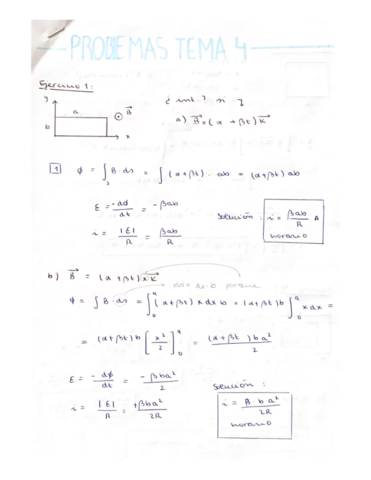 PROBLEMAS TEMA 4
Ejercicio 1:
y a b x B⃗
¿ int. ? si I
a) B⃗ = (α + βt) K⃗
1 ϕ = ∫s B · ds = ∫ (α + βt) · ab = (α + βt) ab
ε = -dϕ/dt = -βab
i = |ε|/R = βab/R
solución : i = βab/R A
horario
b) B⃗ = (α + βt) x K⃗
ds = dx · b porque
ϕ = ∫ B · ds = ∫₀ᵃ (α + βt) x dx b = (α + βt) b ∫₀ᵃ x dx =
= (α + βt) b [x²/2]₀ᵃ = (α + βt) b a²/2
ε = -dϕ/dt = -β b a²/2
i = |ε|/R = +β b a²/2R
solución :
i = β · b a²/2R
horario